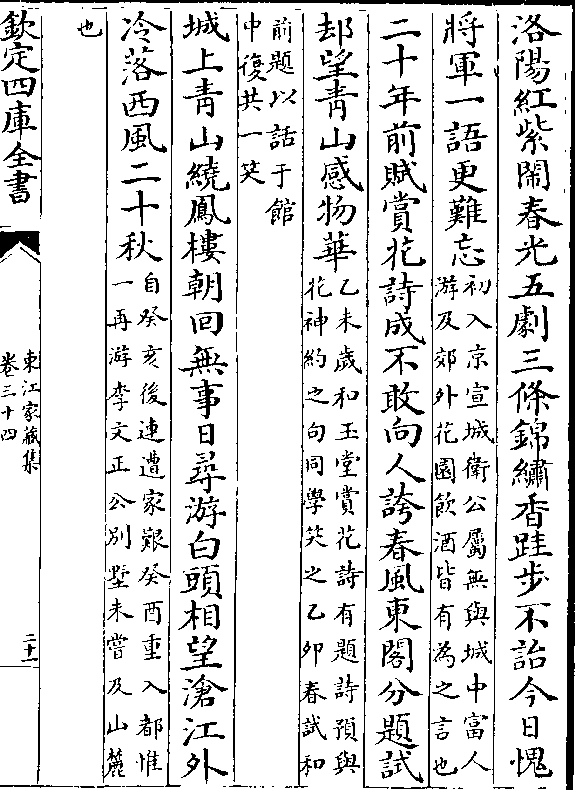 洛陽紅紫鬧春光五劇三條錦繡香跬步不詒今日愧
將軍一語更難忘初入京宣城衛公屬無與城中富人
游及郊外花園飲酒皆有為之言也
二十年前賦賞花詩成不敢向人誇春風東閣分題試
却望青山感物華乙未歲和玉堂賞花詩有題詩預與
花神約之句同學笑之乙夘春試和
前題以話于館
中復共一笑
城上青山繞鳳樓朝回無事日尋游白頭相望滄江外
冷落西風二十秋自癸亥後連遭家艱癸酉重入都惟
一再游李文正公别墅未嘗及山麓
也
欽定四庫全書
東江家藏集
卷三十四
二十一